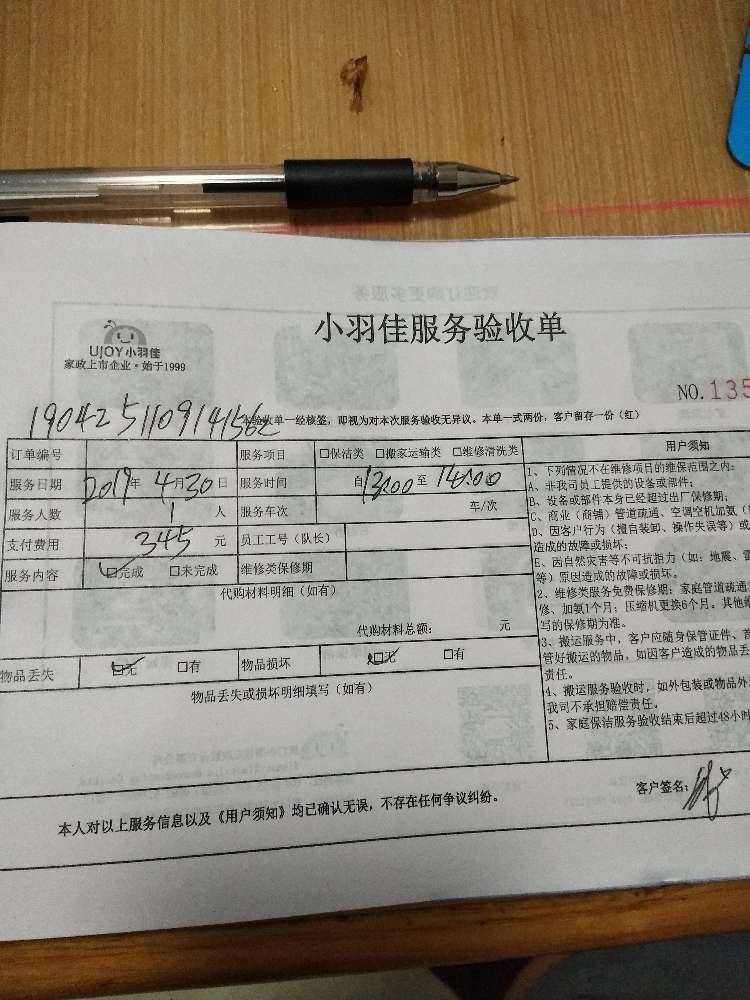 小羽佳服务验收单
UJOY小羽佳
家政上市企业·始于1999
NO.135
本验收单一经核签，即视为对本次服务验收无异议。本单一式两份，客户留存一份（红）
订单编号 服务项目 □保洁类 □搬家运输类 □维修清洗类
服务日期 2019年 4月30日 服务时间 自13:00至14:00
服务人数 1 人 服务车次 车/次
支付费用 345 元 员工工号（队长）
服务内容 ☑完成 □未完成 维修类保修期
代购材料明细（如有）
代购材料总额： 元
物品丢失 ☑无 □有 物品损坏 ☑无 □有
物品丢失或损坏明细填写（如有）
用户须知
1、下列情况不在维修项目的维保范围之内：
A、非我司员工提供的设备或部件；
B、设备或部件本身已经超过出厂保修期；
C、商业（商铺）管道疏通、空调空机加氨（
D、因客户行为（擅自装卸、操作失误等）或
造成的故障或损坏；
E、因自然灾害等不可抗拒力（如：地震、雷
等）原因造成的故障或损坏。
2、维修类服务免费保修期：家庭管道疏通
修、加氨1个月；压缩机更换6个月。其他维
写的保修期为准。
3、搬运服务中，客户应随身保管证件、首
管好搬运的物品，如因客户造成的物品丢
责任。
4、搬运服务验收时，如外包装或物品外
我司不承担赔偿责任。
5、家庭保洁服务验收结束后超过48小时
本人对以上服务信息以及《用户须知》均已确认无误，不存在任何争议纠纷。
客户签名：